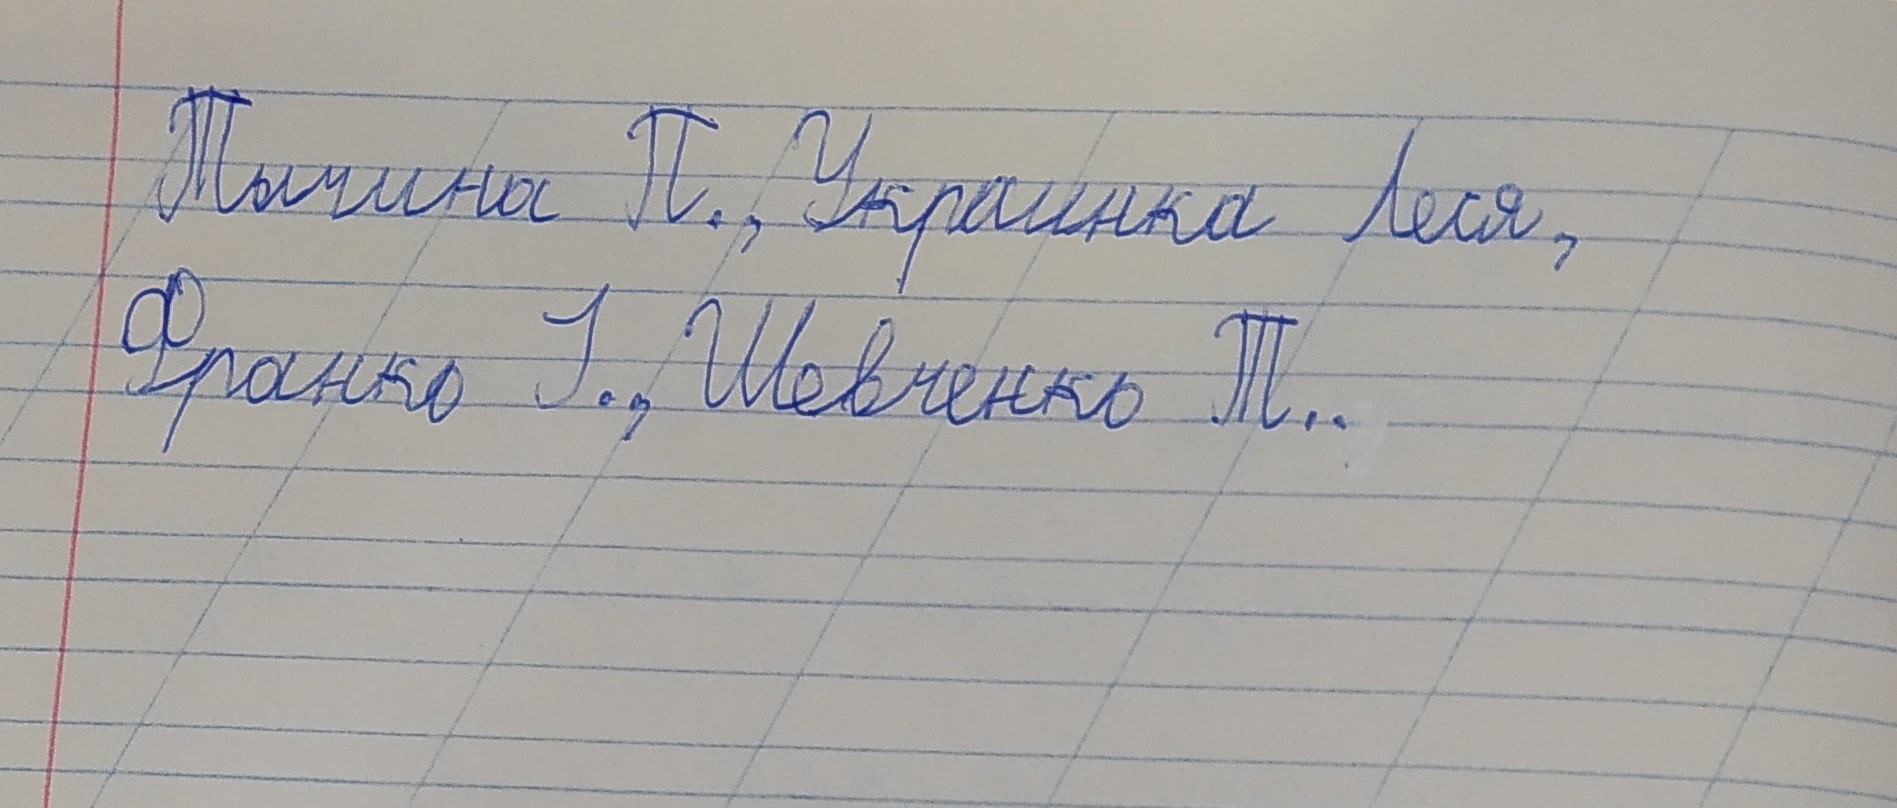 Тычина П., Украинка Леся,
Франко І., Шевченко Т..